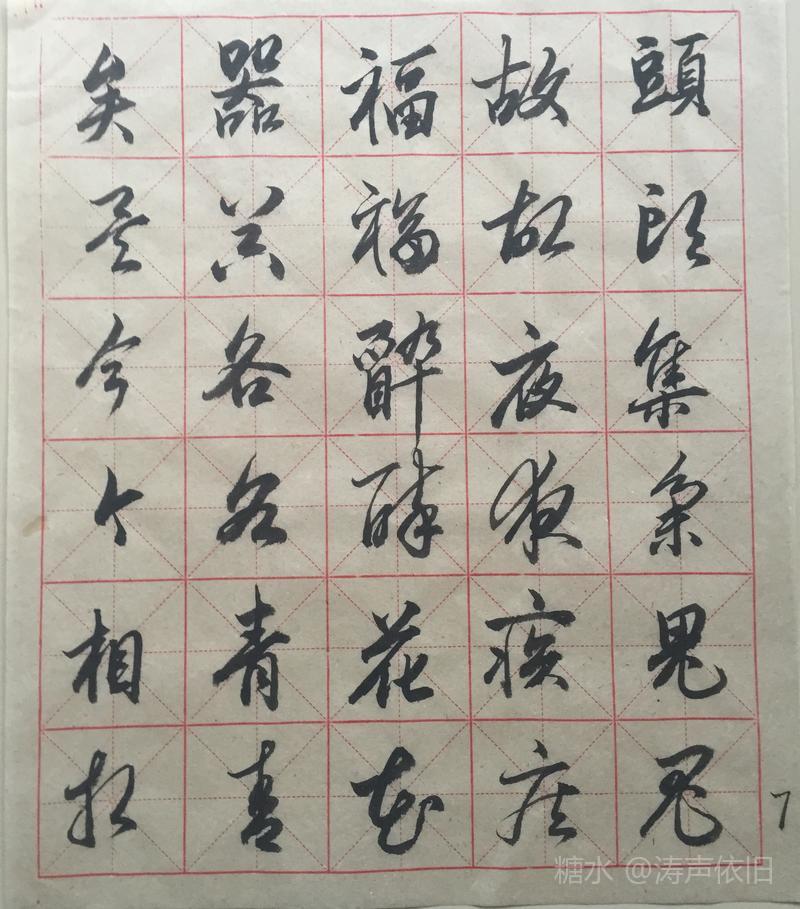 頭頭集集鬼鬼
故故夜夜疾疾
福福醉醉花花
器器各各青青
矣矣今今相相
7
糖水 @涛声依旧